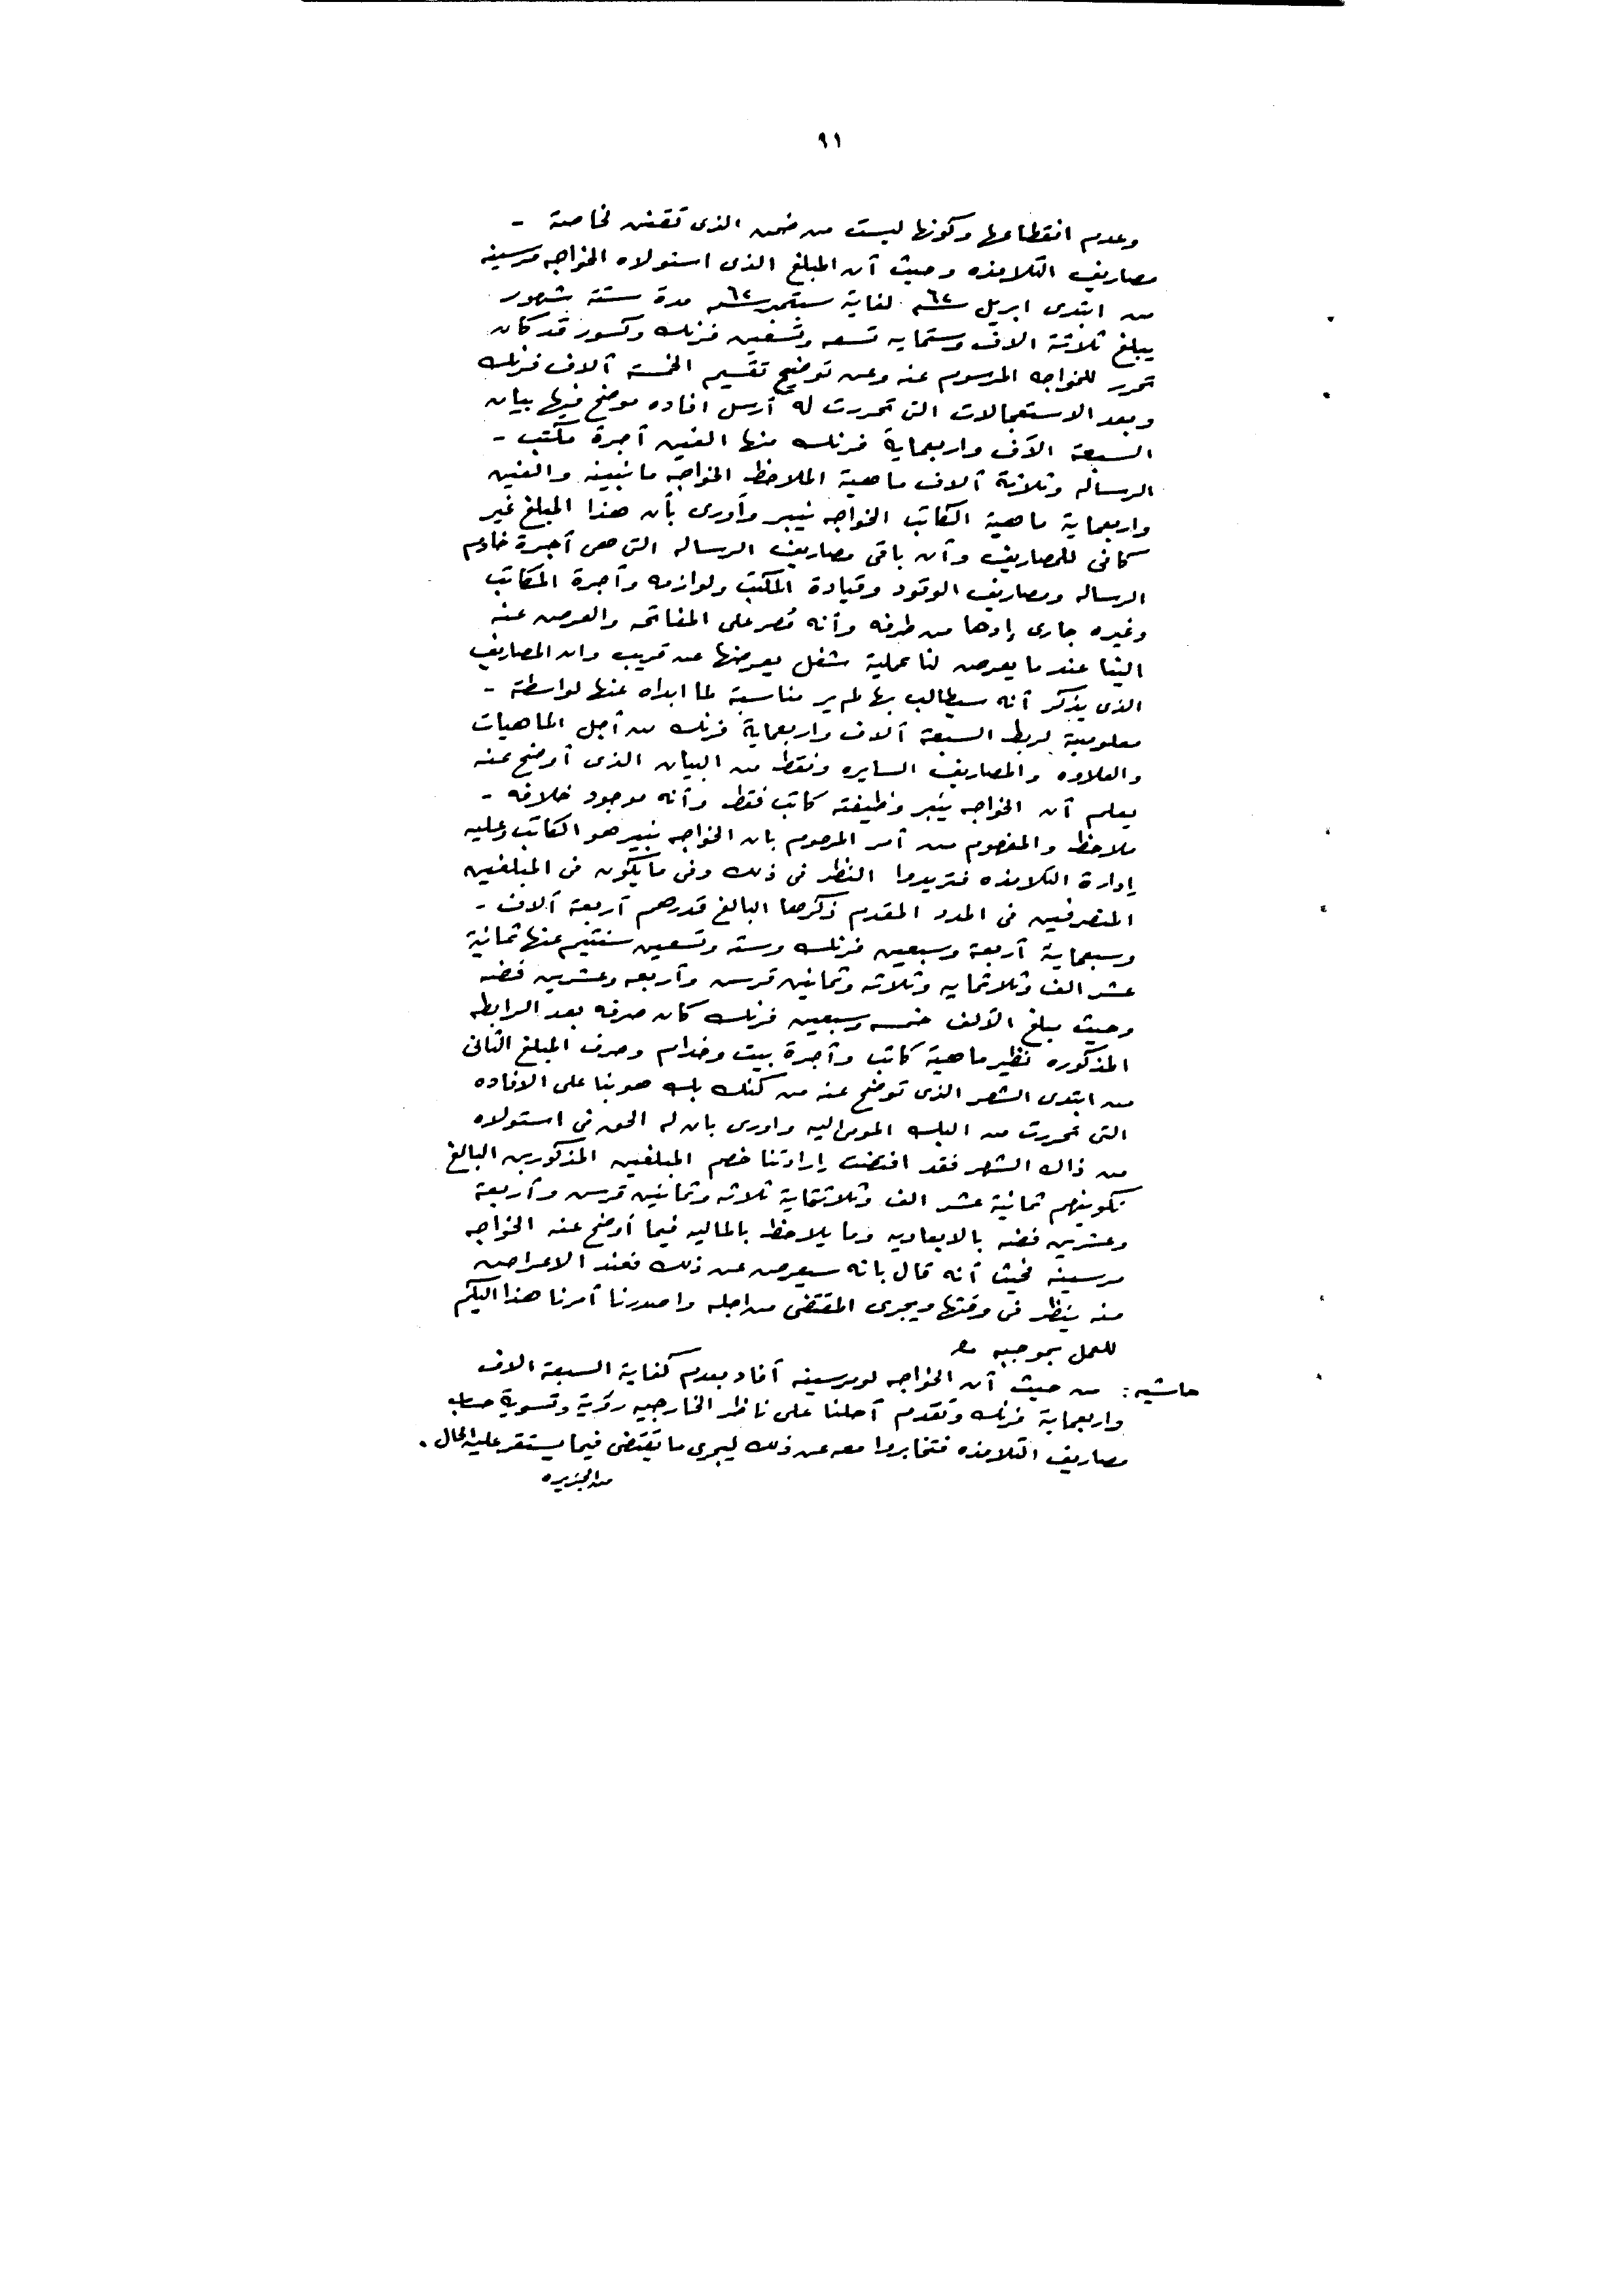 ٩١
وعدم انقطاعها وكونها ليست من ضمن الذى تقنن لخاصة -
مصاريف التلامذه وحيث أن المبلغ الذى استولاه الخواجه مرسيه
من ابتدى ابريل سنة ٦٢ لغاية سبتمبر سنة ٦٢ مدة ستة شهور
يبلغ ثلاثة الاف وستمايه تسعه وتسعين فرنك وكسور قد كان
تحرر للخواجه المرسوم عنه وعن توضيح تقسيم الخمسة آلاف فرنك
وبعد الاستعجالات التى تحررت له أرسل افاده موضح فيها بيان
السبعة الآف واربعماية فرنك منها الفين أجرة مكتب -
الرساله وثلاثة آلاف ماهية الملاحظ الخواجه والفين
واربعماية ماهية الكاتب الخواجه نيبر وأورى بأن هذا المبلغ غير
كافى للمصاريف وأن باقى مصاريف الرساله التى هى أجرة خادم
الرساله ومصاريف الوقود وقيادة المكتب ولوازمه وأجرة المكاتب
وغيره جارى إدها من طرفه وأنه مُصر على المفاتحه والعرض عنه
الينا عند ما يعرض لنا عملية شغل يعرضها عن قريب وان المصاريف
الذى يذكر أنه سيطالب بها لم ير مناسبة لما ابداه عنها لواسطة -
معلومية لربط السبعة آلاف واربعماية فرنك من أجل الماهيات
والعلاوه والمصاريف السايره وفقط من البيان الذى أوضح عنه
يعلم أن الخواجه نيبر وظيفته كاتب فقط وأنه موجود خلافه -
ملاحظ والمفهوم من أمر المرحوم بان الخواجه نيبر هو الكاتب وعليه
إدارة التلامذه فتريدوا النظر فى ذلك وفى ما يكون فى المبلغين
المنصرفين فى المدد المقدم ذكرها البالغ قدرهم أربعة آلاف -
وسبعماية أربعة وسبعين فرنك وسته وتسعين سنتيم عنها ثمانية
عشر الف وثلاثمايه وثلاثه وثمانين قرس وأربعه وعشرين فضه
وحيث مبلغ الألف خمسه وسبعين فرنك كان صرفه بعد الرابطه
المذكوره نظير ماهية كاتب وأجرة بيت وخدام وصرف المبلغ الثانى
من ابتدى الشهر الذى توضح عنه من كنك بك هو بنا على الافاده
التى تحررت من البك المومى اليه واورى بان له الحق فى استولاه
من ذاك الشهر فقد اقتضت إرادتنا خصم المبلغين المذكورين البالغ
تكوينهم ثمانية عشر الف وثلاثماية ثلاثه وثمانين قرس وأربعة
وعشرين فضه بالابعاديه وما يلاحظ بالماليه فيما أوضح عنه الخواجه
مرسيه بحيث أنه قال بانه سيعرض عن ذلك فعند الاعراض
منه ينظر فى وقتها ويجرى المقتضى من اجله واصدرنا أمرنا هذا اليكم
للعمل بموجبه
حاشيه: من حيث أن الخواجه لومرسيه أفاد بعدم كفاية السبعة الاف
واربعماية فرنك وتقدم أحلنا على ناظر الخارجيه رؤية وتسوية حساب
مصاريف التلامذه فتخابروا معه عن ذلك ليجرى ما يقتضى فيما يستقر عليه الحال.
من الجزيره